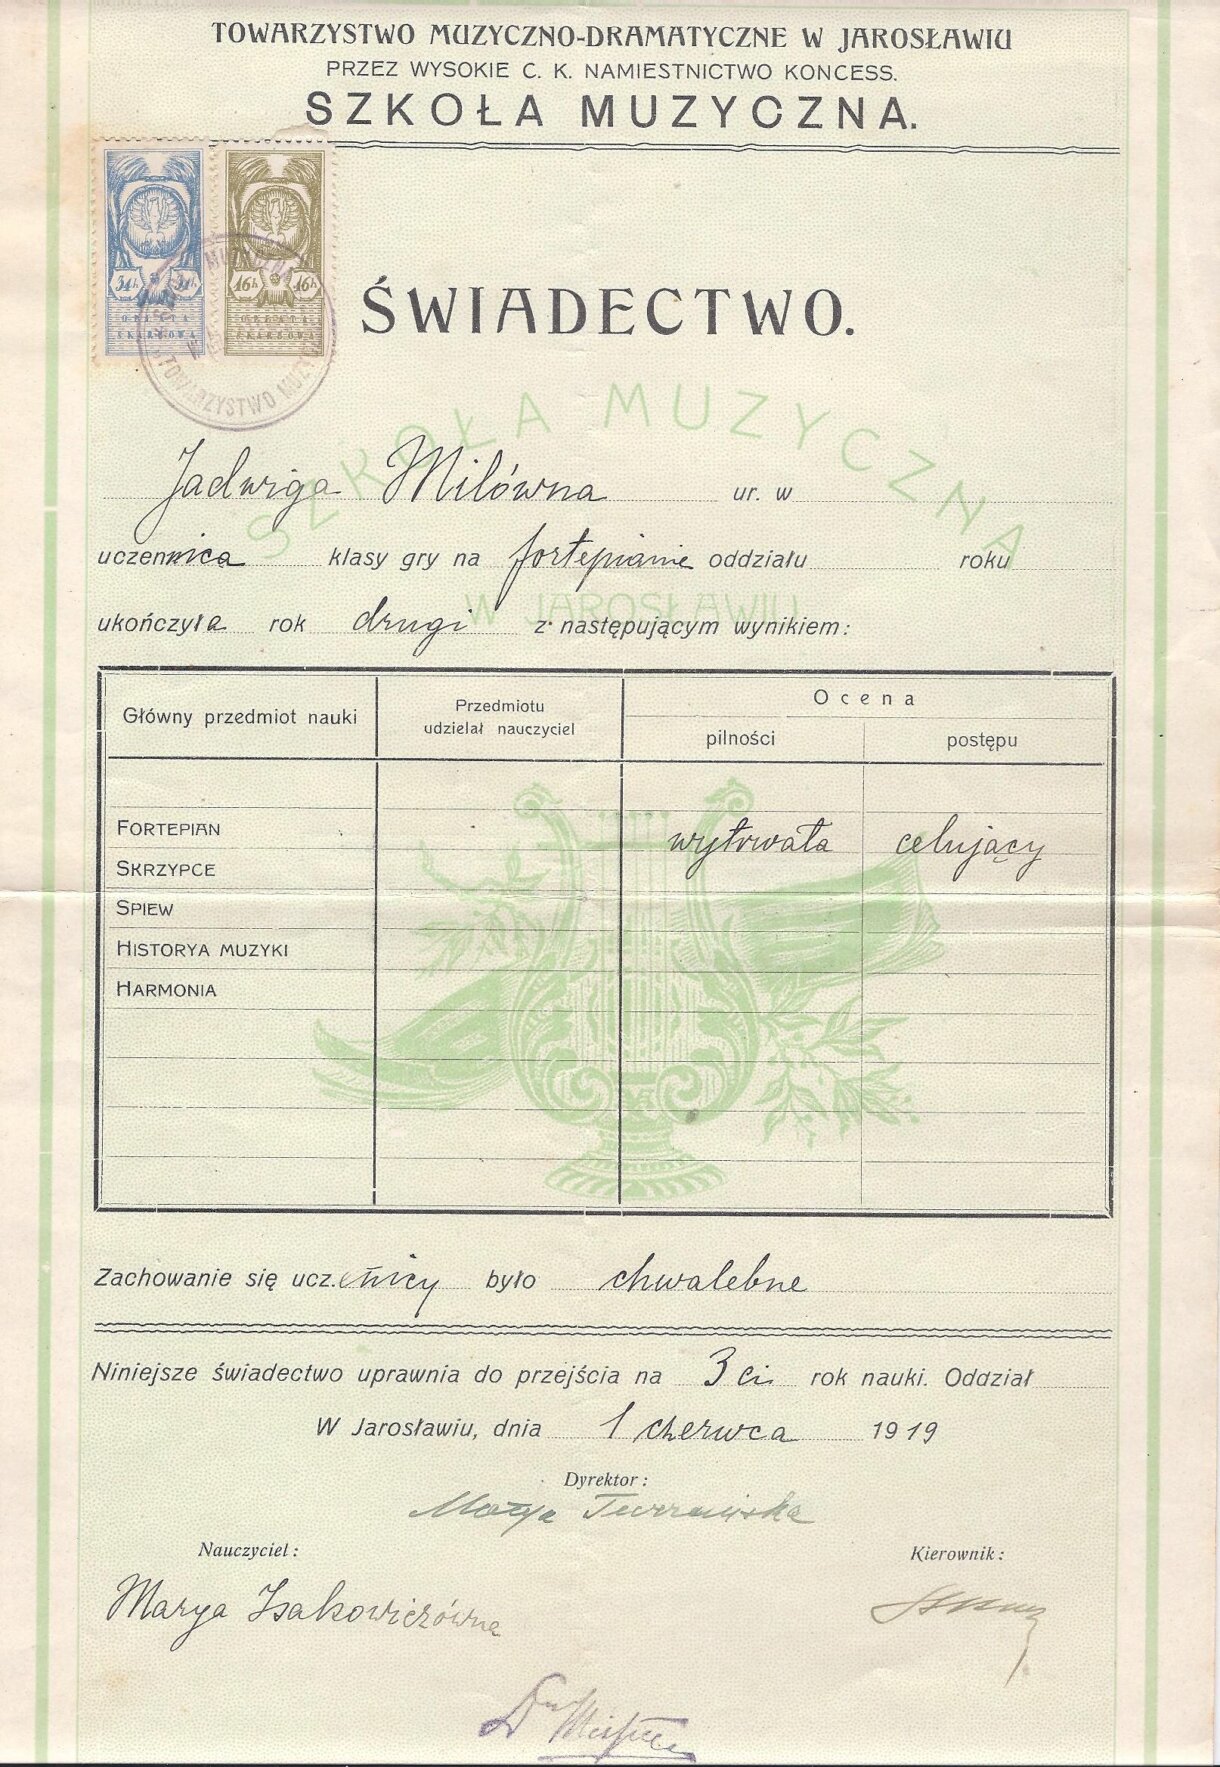 TOWARZYSTWO MUZYCZNO-DRAMATYCZNE W JAROSŁAWIU
PRZEZ WYSOKIE C. K. NAMIESTNICTWO KONCESS.
SZKOŁA MUZYCZNA.
34h. 34h. 16h. 16h.
OPŁATA OPŁATA
SKARBOWA SKARBOWA
MUZYCZNA
TOWARZYSTWO MUZY
ŚWIADECTWO.
SZKOŁA MUZYCZNA
W JAROSŁAWIU
Jadwiga Milówna ur. w
uczennica klasy gry na fortepianie oddziału roku
ukończyła rok drugi z następującym wynikiem:
Główny przedmiot nauki Przedmiotu udzielał nauczyciel Ocena
pilności postępu
FORTEPIAN wytrwała celujący
SKRZYPCE
SPIEW
HISTORYA MUZYKI
HARMONIA
Zachowanie się uczenicy było chwalebne
Niniejsze świadectwo uprawnia do przejścia na 3ci rok nauki. Oddział
W Jarosławiu, dnia 1 czerwca 1919
Dyrektor:
Marya
Nauczyciel: Kierownik:
Marya Isakowiczówna
Dr